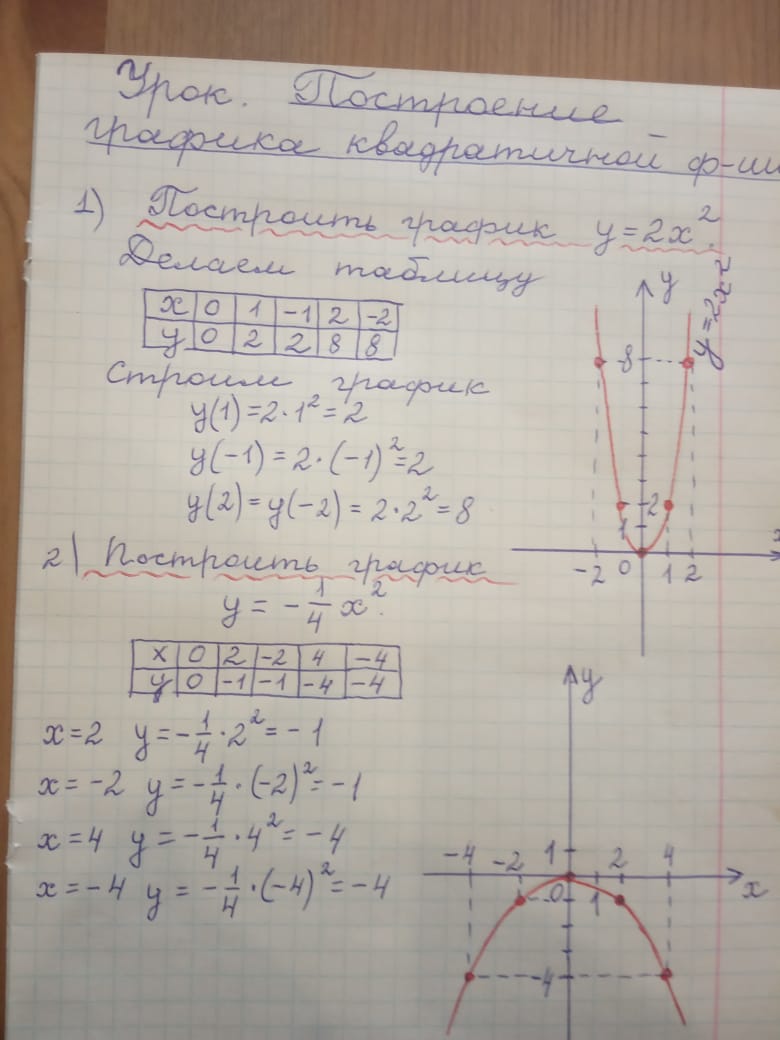 Урок. Построение
графика квадратичной ф-ии
1) Построить график y = 2x².
Делаем таблицу
x 0 1 -1 2 -2
y 0 2 2 8 8
Строим график
y(1) = 2·1² = 2
y(-1) = 2·(-1)² = 2
y(2) = y(-2) = 2·2² = 8
y
y = 2x²
8
2
1
-2 0 1 2
x
2) Построить график
y = -1/4 x².
x 0 2 -2 4 -4
y 0 -1 -1 -4 -4
x = 2 y = -1/4·2² = -1
x = -2 y = -1/4·(-2)² = -1
x = 4 y = -1/4·4² = -4
x = -4 y = -1/4·(-4)² = -4
y
-4 -2 1 2 4
0 1
x
-4